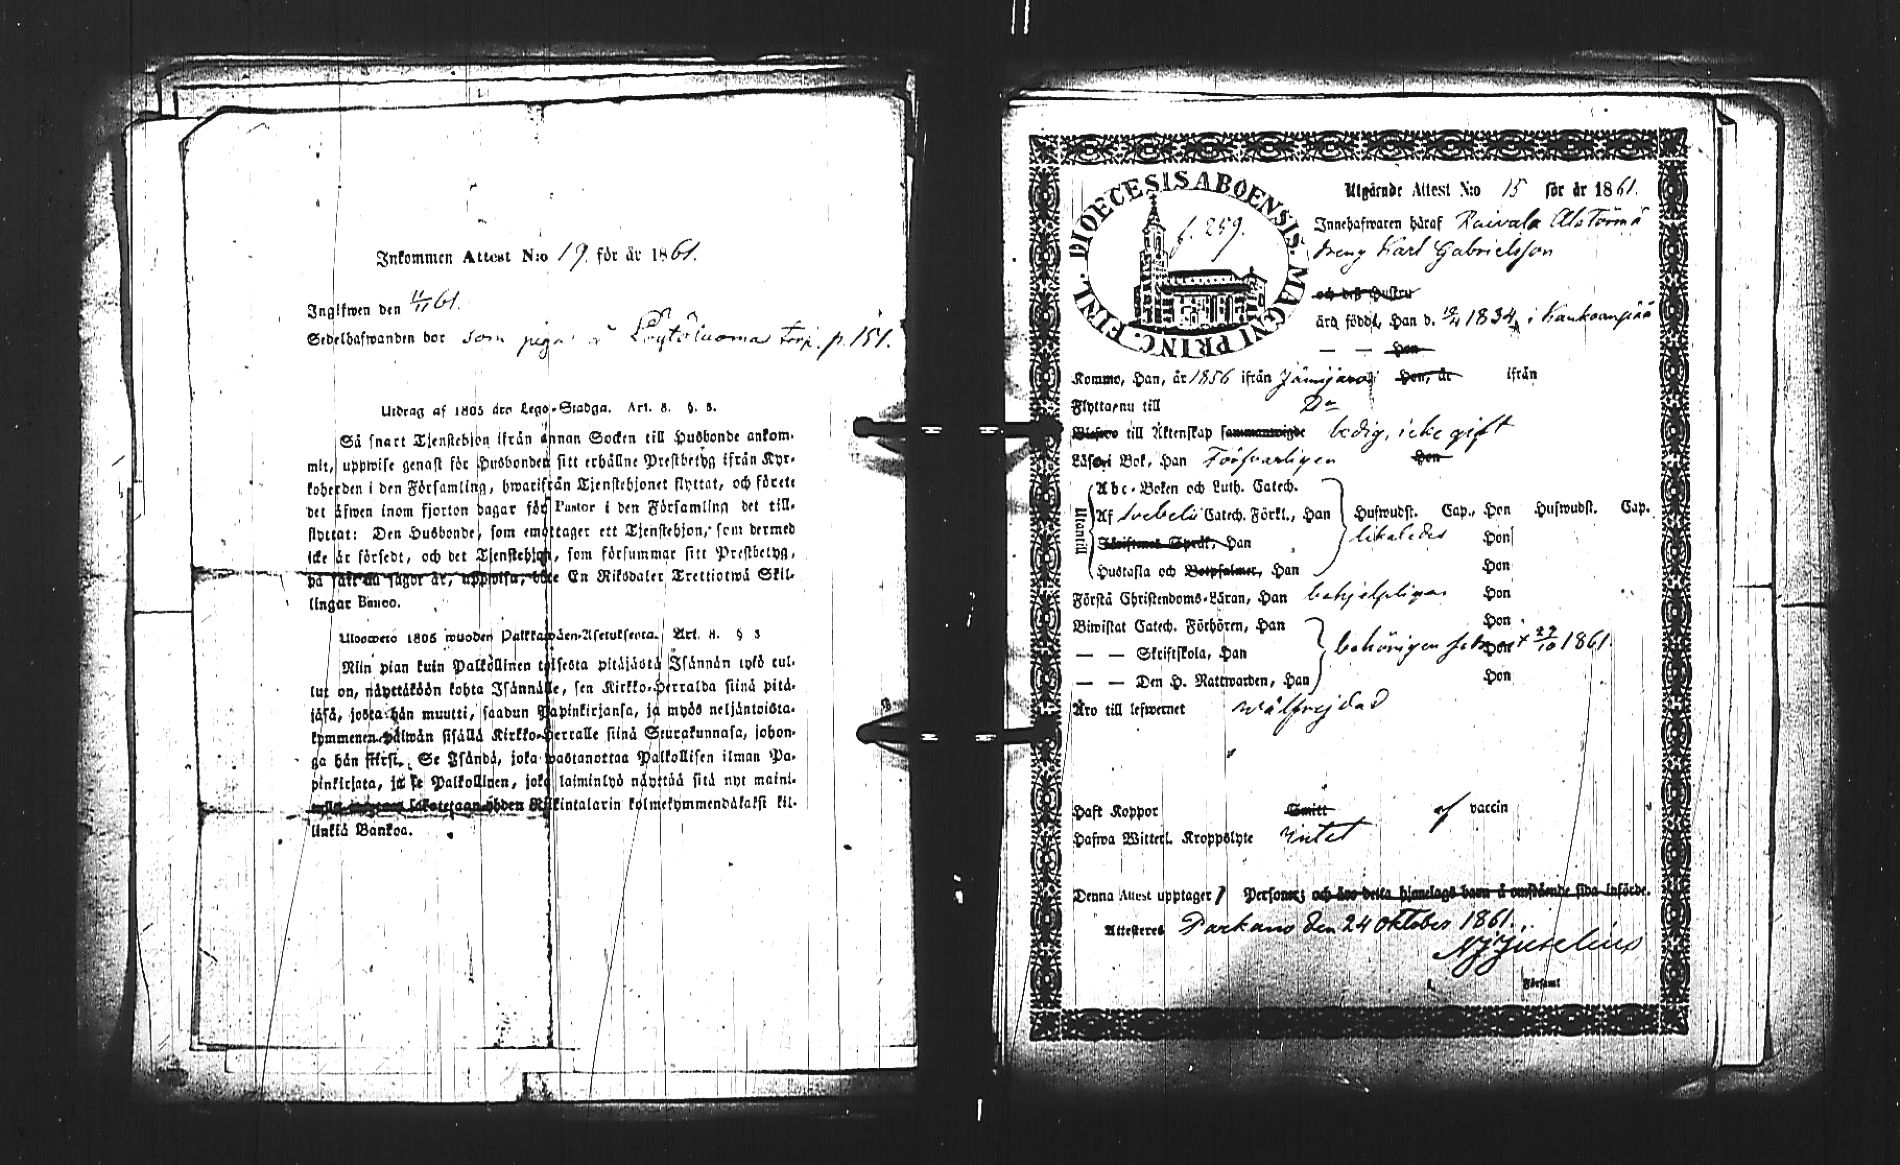 Inkommen Attest N:o 19. för år 1861.
Inglfwen den 4/11 61.
Sedelhafwanden bor som piga å Löytöluoma torp. p. 151.
Utdrag af 1805 års Lego-Stadga. Art. 8. §. 8.
Så snart Tjenstehjon ifrån annan Socken till Husbonde ankom-
mit, uppwise genast för Husbonden sitt erhållne Prestbetyg ifrån Kyr-
koherden i den Församling, hwarifrån Tjenstehjonet flyttat, och förete
det äfwen inom fjorton dagar för Pastor i den Församling det till-
flyttat: Den Husbonde, som emottager ett Tjenstehjon, som dermed
icke är försedt, och det Tjenstehjon, som försummar sitt Prestbetyg,
på sätt nu sagdt är, uppwisa, böte En Riksdaler Trettiotwå Skil-
lingar Banco.
Ulosweto 1805 wuoden Palkkawäen-Asetuksesta. Art. 8. § 3
Niin pian kuin Palkollinen toisesta pitäjästä Isännän tykö tul-
lut on, näyttäköön kohta Isännälle, sen Kirkko-Herralda siinä pitä-
jäsä, josta hän muutti, saadun Papinkirjansa, ja myös neljäntoista-
kymmenen päiwän sisällä Kirkko-Herralle siinä Seurakunnasa, johon-
ga hän siirsi. Se Isändä, joka wastanottaa Palkollisen ilman Pa-
pinkirjata, ja se Palkollinen, joka laiminlyö näyttää sitä nyt maini-
sakotetaan yhden Rikintalarin kolmekymmendäkaksi kil-
linkiä Bankoa.
FINL. DIOECESIS ABOENSIS. MAGNI PRINC.
f. 259.
Utgående Attest N:o 15 för år 1861.
Innehafwaren häraf Raivala Alatörmä
dreng Karl Gabrielsson
och dess Hustru
äro född, Han d. 1834, i Kankaanpää
— — Hon
Kommo, Han, år 1856 ifrån Jämijärvi Hon, år ifrån
Flytta nu till Do
till Äktenskap sammanwigde ledig, icke gift
Läser i Bok, Han Försvarligen Hon
Utantill
Abc-Boken och Luth. Catech.
Af Svebelii Catech. Förkl., Han Hufwudst. Cap., Hon Hufwudst. Cap.
Skriftenes Språk, Han likaledes Hon
Hustafla och Botpsalmer, Han Hon
Förstå Christendoms-Läran, Han behjelpligen Hon
Biwistat Catech. Förhören, Han Hon
— — Skriftskola, Han behörigen Hon 1861.
— — Den H. Nattwarden, Han Hon
Äro till lefwernet wälfrejdad
Haft Koppor Smitt af vaccin
Hafwa Witterl. Kroppslyte intet
Denna Attest upptager 1 Personer; och äro detta hjonelags barn å omstående sida införde.
Attesteres Parkano den 24 oktober 1861.
Juselius
Församl